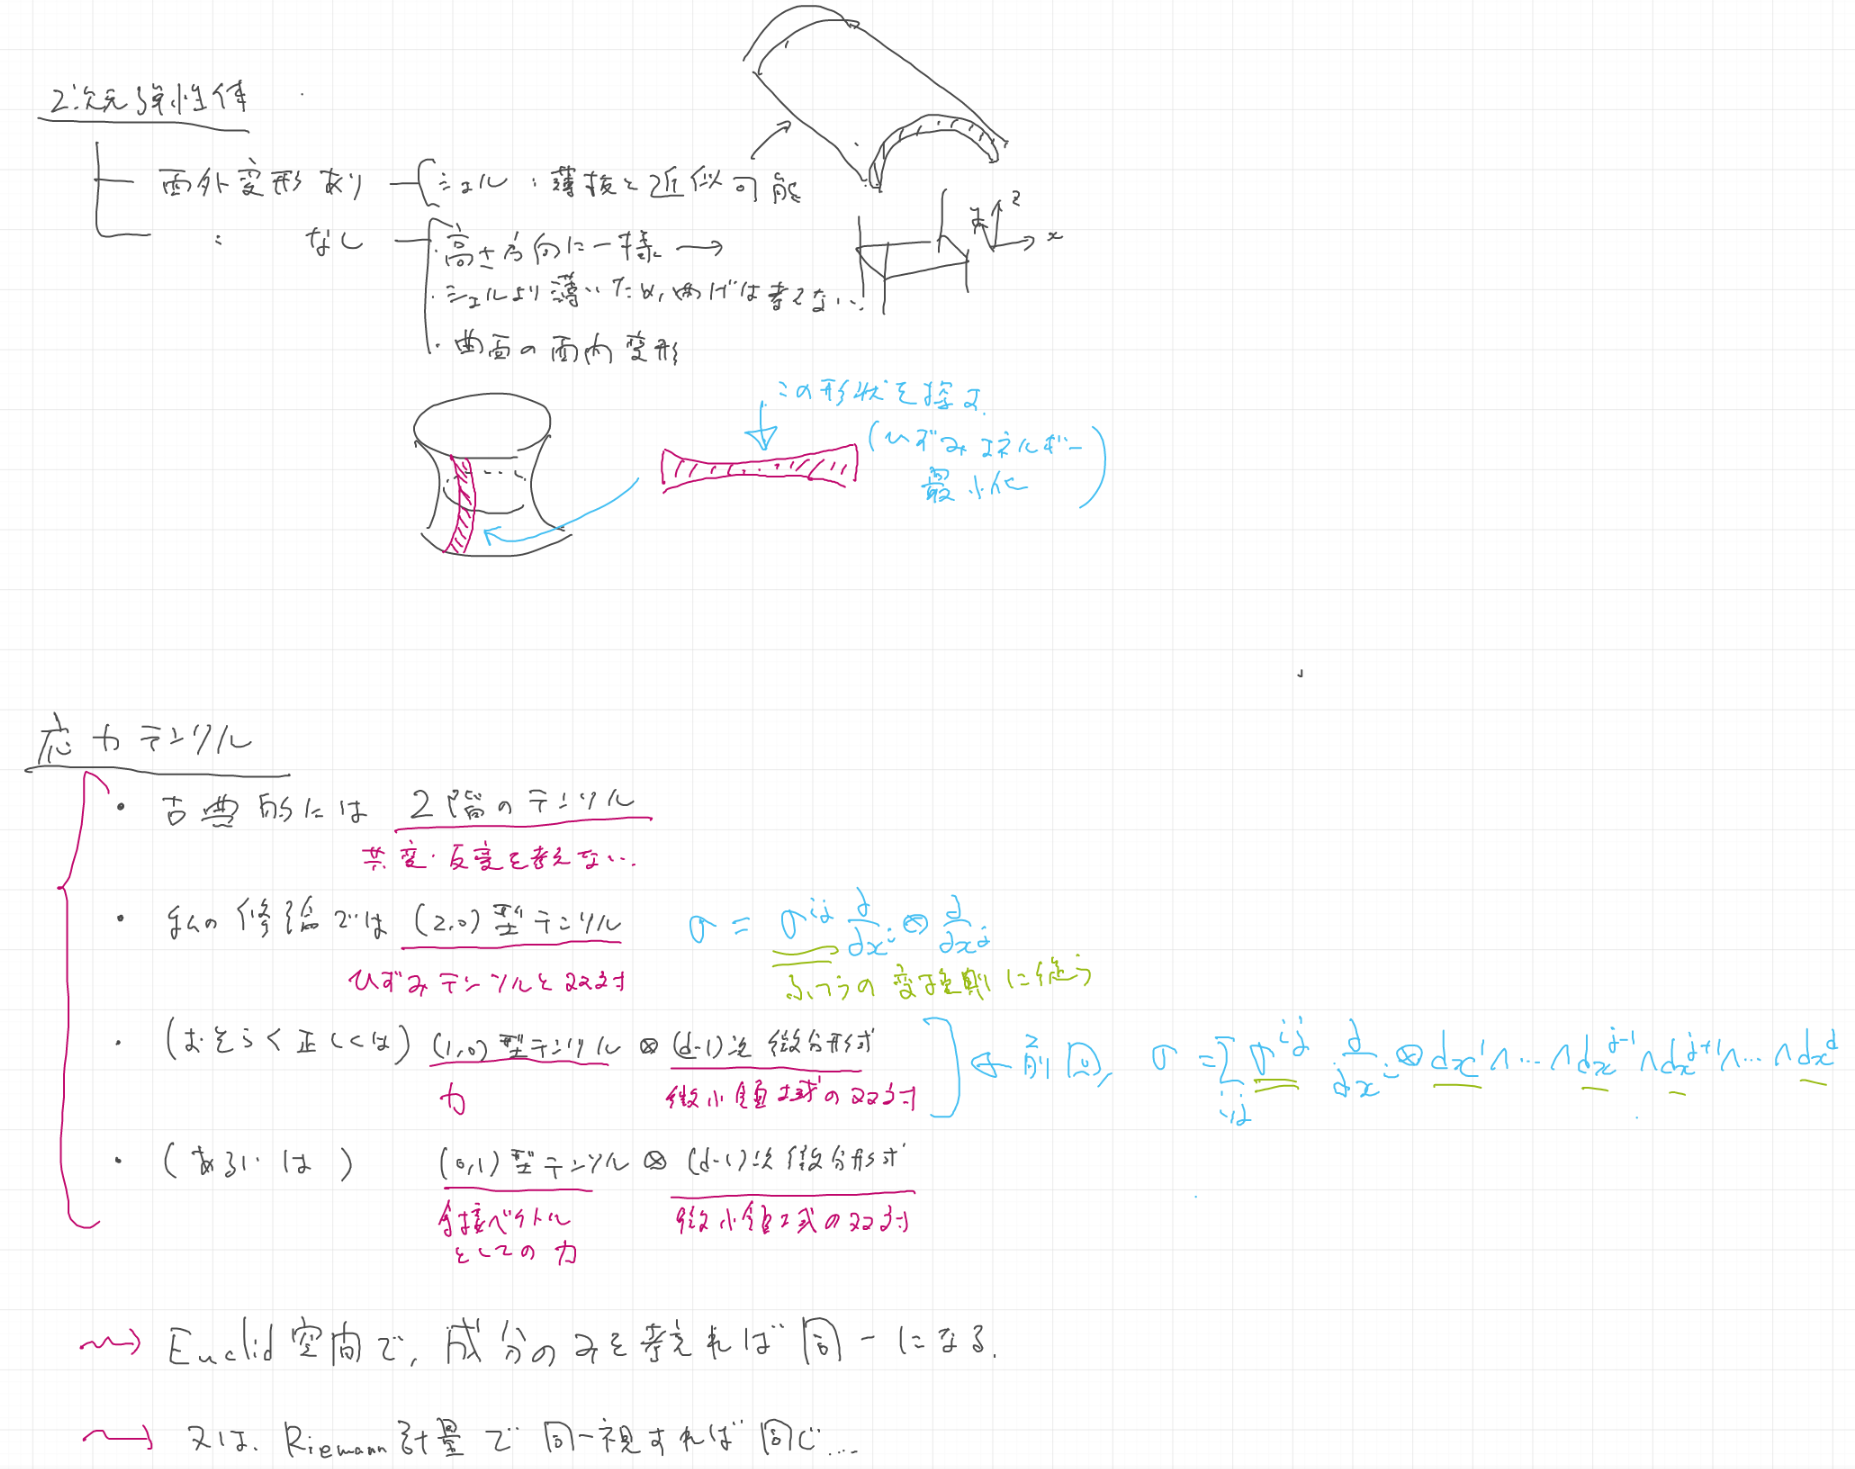 2次元弾性体
面外変形あり { シェル : 薄板と近似可能
: なし { ・高さ方向に一様 →
・シェルより薄いため, 曲げは考えない.
・曲面の面内変形
z
y
x
この形状を探す.
(ひずみエネルギー
最小化)
応力テンソル
・ 古典的には 2階のテンソル
共変・反変を考えない.
・ 私の修論では (2,0)型テンソル σ = σ^{ij} ∂/∂x^i ⊗ ∂/∂x^j
ひずみテンソルと双対
ふつうの変換則に従う
・ (おそらく正しくは) (1,0)型テンソル ⊗ (d-1)次微分形式 ← 前回, σ = Σ_{i,j} σ^{ij} ∂/∂x^i ⊗ dx^1∧…∧dx^{j-1}∧dx^{j+1}∧…∧dx^d
力 微小領域の双対
・ (あるいは) (0,1)型テンソル ⊗ (d-1)次微分形式
余接ベクトル 微小領域の双対
としての力
⇝ Euclid空間で, 成分のみを考えれば同一になる.
⇝ 又は. Riemann計量で同一視すれば同じ...